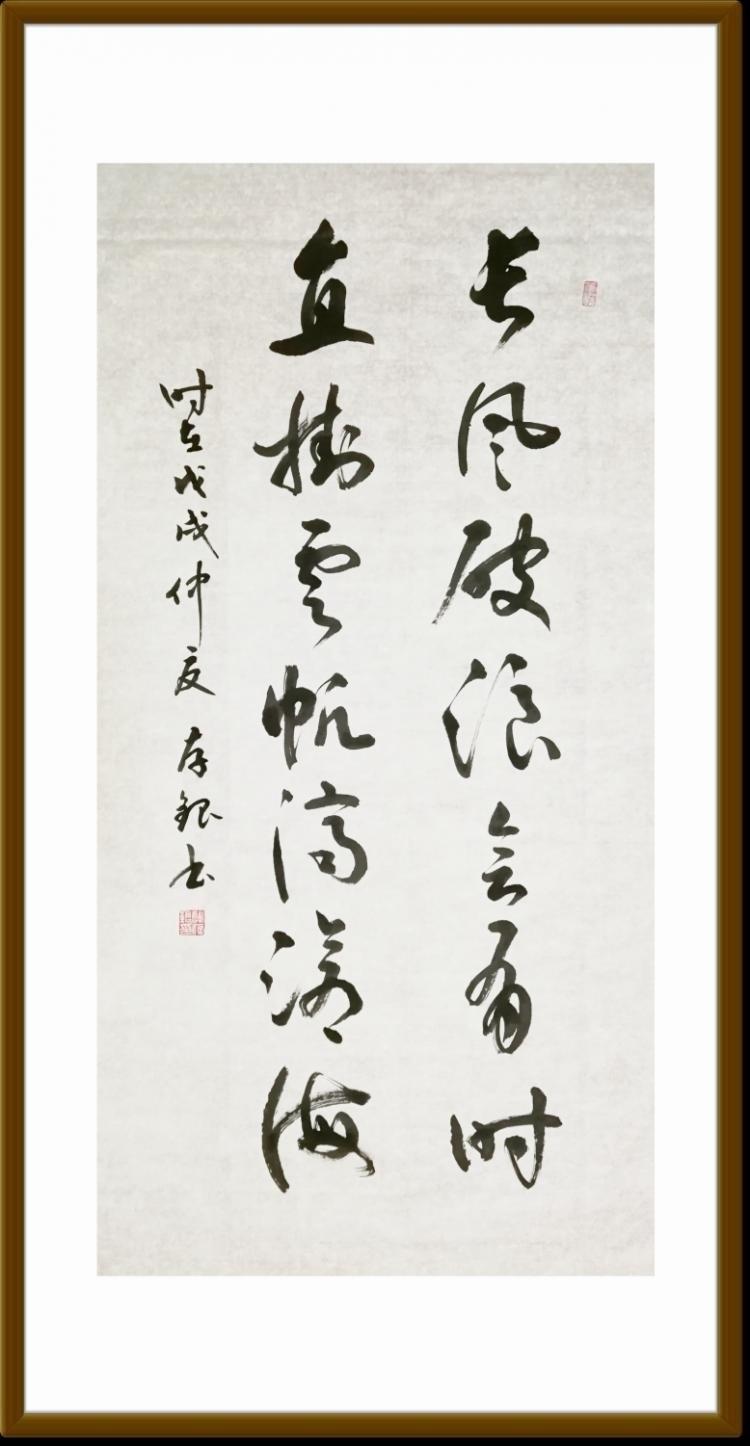 长风破浪会有时
直掛雲帆济沧海
时在戊戌仲夏 存银书